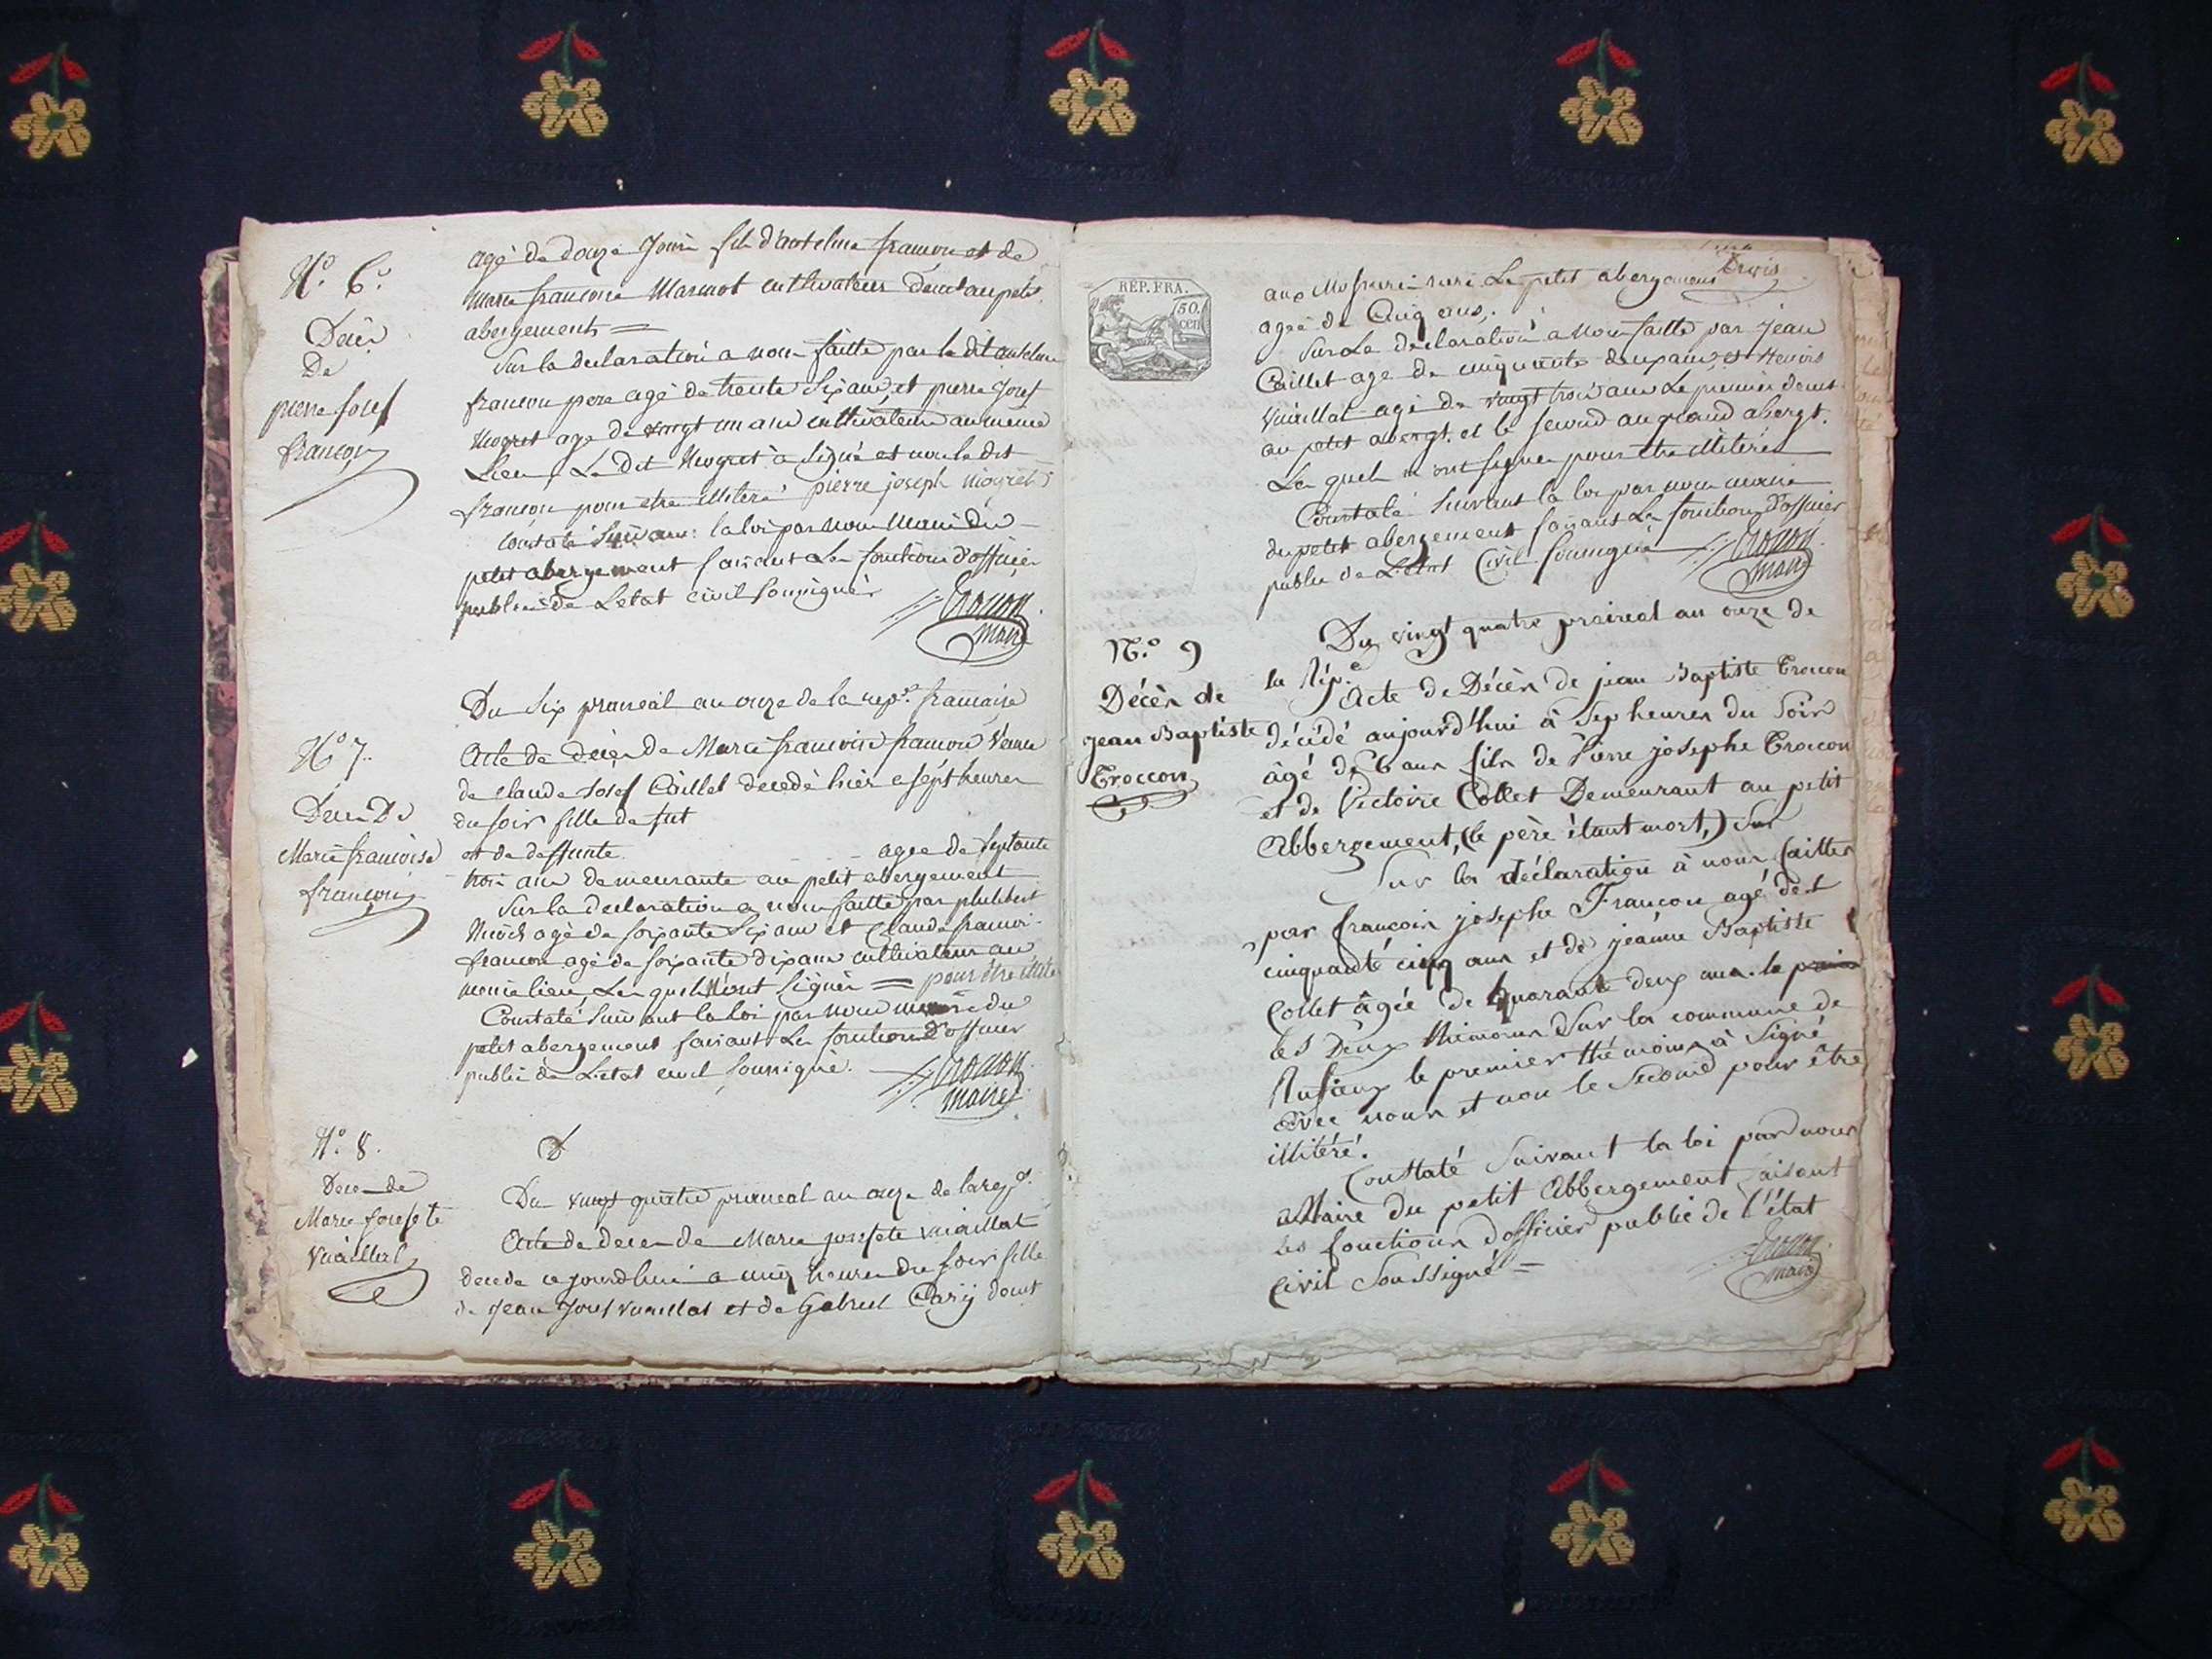 N.º 6.
Décès
De
pierre Josef
francon
agé de douze Jours fils d'antelme francon et de
Marie francoise Marmot cultivateur demt au petit
abergement =
Sur la declaration a nous faitte par le dit antelme
francon pere agé de trente six ans, et pierre Josef
Mogret age de vingt un ans cultivateur au meme
Lieu, Le Dit Mogret à Signé et non le dit
francon pour etre illiteré pierre joseph mogret
Constaté Suivant la loi par nous Maire du
petit abergement faisant Les fonctions d'officier
public de L'etat civil soussigné
Troccon
maire
Du Six prairéal an onze de la rep.e francaise
N.º 7.
Deces De
Marie francoise
francon
Acte de décès de Marie francoise francon Veuve
de claude Josef Caillet decedé hier a sept heures
du soir fille de fut
et de deffunte agee de septante
trois ans demeurante au petit abergement
Sur la declaration a nous faitte par philibert
agé de soixante Six ans et Claude francoi
francon agé de soixante dix ans cultivateur au
meme lieu, Les quels N'ont Signés = pour être illité
Constaté Suivant la loi par nous maire du
petit abergement faisant Les fonctions d'officier
public de L'etat civil soussigné.
Troccon
maire
N.º 8.
Deces de
Marie Josefete
Vuaillat
Du vingt quatre prairéal an onze de la rep.e
Acte de deces de Marie josefete Vuaillat
decede ce jourdhui a cinq heures du soir fille
de Jean Josef Vuaillat et de Gabriel Carij demt
RÉP. FRA.
50.
cen.
aux Le petit abergement
agée de Cinq ans.
Sur La declaration a nous faitte par Jean
Caillet age de cinquante deux ans et
Vuaillat agé de vingt trois ans Le premier demt
au petit abergt. et le second au grand abergt.
Les quels n'ont signer pour etre illiterés
Constaté Suivant la loi par nous maire
du petit abergement faisant Les fonctions d'officier
public de L'etat Civil soussigné
Troccon
maire
N.º 9
Décès de
jean Baptiste
Troccon
Du vingt quatre prairéal an onze de
la Rép.e
Acte de Décès de jean Baptiste Troccon
décédé aujourd'hui à Sep heures du Soir
âgé de 6 ans fils de Pierre josephe Troccon
et de Victoire Collet Demeurant au petit
Abbergement, (le père étant mort,) Sur
Sur la déclaration à nous faitter
par francois josephe Francon agé de
cinquante cinq ans et de jeanne Baptiste
Collet âgée de quarante deux ans. le
les Deux thémoins Sur la commune de
Rufieux le premier thémoins à Signé
avec nous et non le Second pour être
illitéré.
Constaté Suivant la loi par nous
Maire du petit Abbergement faisant
les fonctions d'officier public de l'état
civil Soussigné =
Troccon
maire